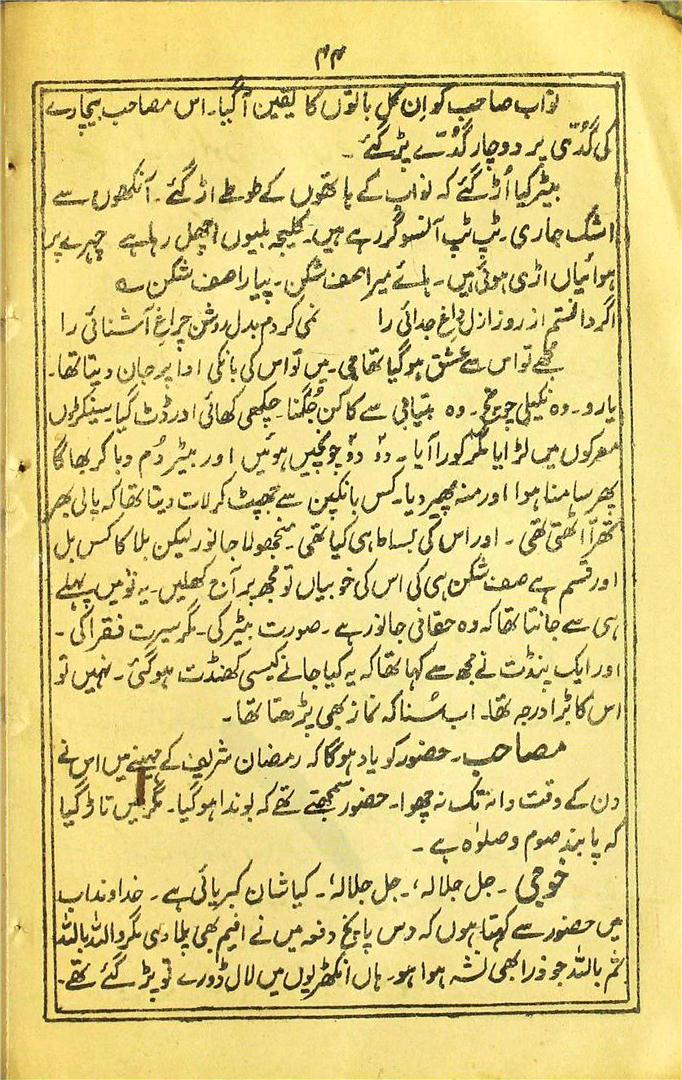 ۴۴
نواب صاحب کو ان کل باتوں کا یقین آگیا۔ اس مصاحب بیچارے
کی گُدّی پر دوچار گُدّے پڑگئے۔
بٹیر کیا اُڑگئے کہ نواب کے ہاتھوں کے طوطے اڑگئے۔ آنکھوں سے
اشک جاری۔ ٹپ ٹپ آنسو گر رہے ہیں۔ کلیجہ بلیوں اچھل رہا ہے چہرے پر
ہوائیاں اڑی ہوئی ہیں۔ ہائے میرا صف شکن۔ پیارا صف شکن ؎
اگر دانستم از روز ازل داغِ جدائی را نمی کردم بدل روشن چراغِ آشنائی را
مجھے تو اس سے عشق ہوگیا تھا جی۔ میں تو اس کی بانکی ادا پر جان دیتا تھا۔
یارو۔ وہ نکیلی چونچ۔ وہ بیتابی سے کاکن چُگنا۔ چکھی کھائی اور ڈٹ گیا۔ سینکڑوں
معرکوں میں لڑایا مگر کورا آیا۔ دو دو چونچیں ہوئیں اور بٹیر دُم دبا کر بھاگا
پھر سامنا ہوا اور منہ پھیر دیا۔ کس بانکپن سے جھپٹ کر لات دیتا تھا کہ پالی بھر
تھرّا اٹھتی تھی۔ اور اس کی بساط ہی کیا تھی۔ منجھولا جانور لیکن بلا کا کس بل
اور قسم ہے صف شکن ہی کی اس کی خوبیاں تو مجھ پر آج کھلیں۔ یہ تو میں پہلے
ہی سے جانتا تھا کہ وہ حقانی جانور ہے۔ صورت بٹیر کی۔ مگر سیرت فقرا کی۔
اور ایک پنڈت نے مجھ سے کہا تھا کہ یہ کیا جانے کیسی کھنڈت ہوگئی۔ نہیں تو
اس کا بڑا درجہ تھا۔ اب سُنا کہ نماز بھی پڑھتا تھا۔
مصاحب۔ حضور کو یاد ہوگا کہ رمضان شریف کے مہینے میں اس نے
دن کے وقت دانہ تک نہ چھوا۔ حضور سمجھتے تھے کہ بوندا ہوگیا۔ مگر میں تاڑ گیا
کہ پابندِ صوم و صلوٰہ ہے۔
خوجی۔ جل جلالہ'، جل جلالہ'۔ کیا شان کبریائی ہے۔ خداوند اب
میں حضور سے کہتا ہوں کہ دس پانچ دفعہ میں نے افیم بھی پلا دی مگر واللہ باللہ
ثم باللہ جو ذرا بھی نشہ ہوا ہو۔ ہاں انکھڑیوں میں لال ڈورے تو پڑگئے تھے۔